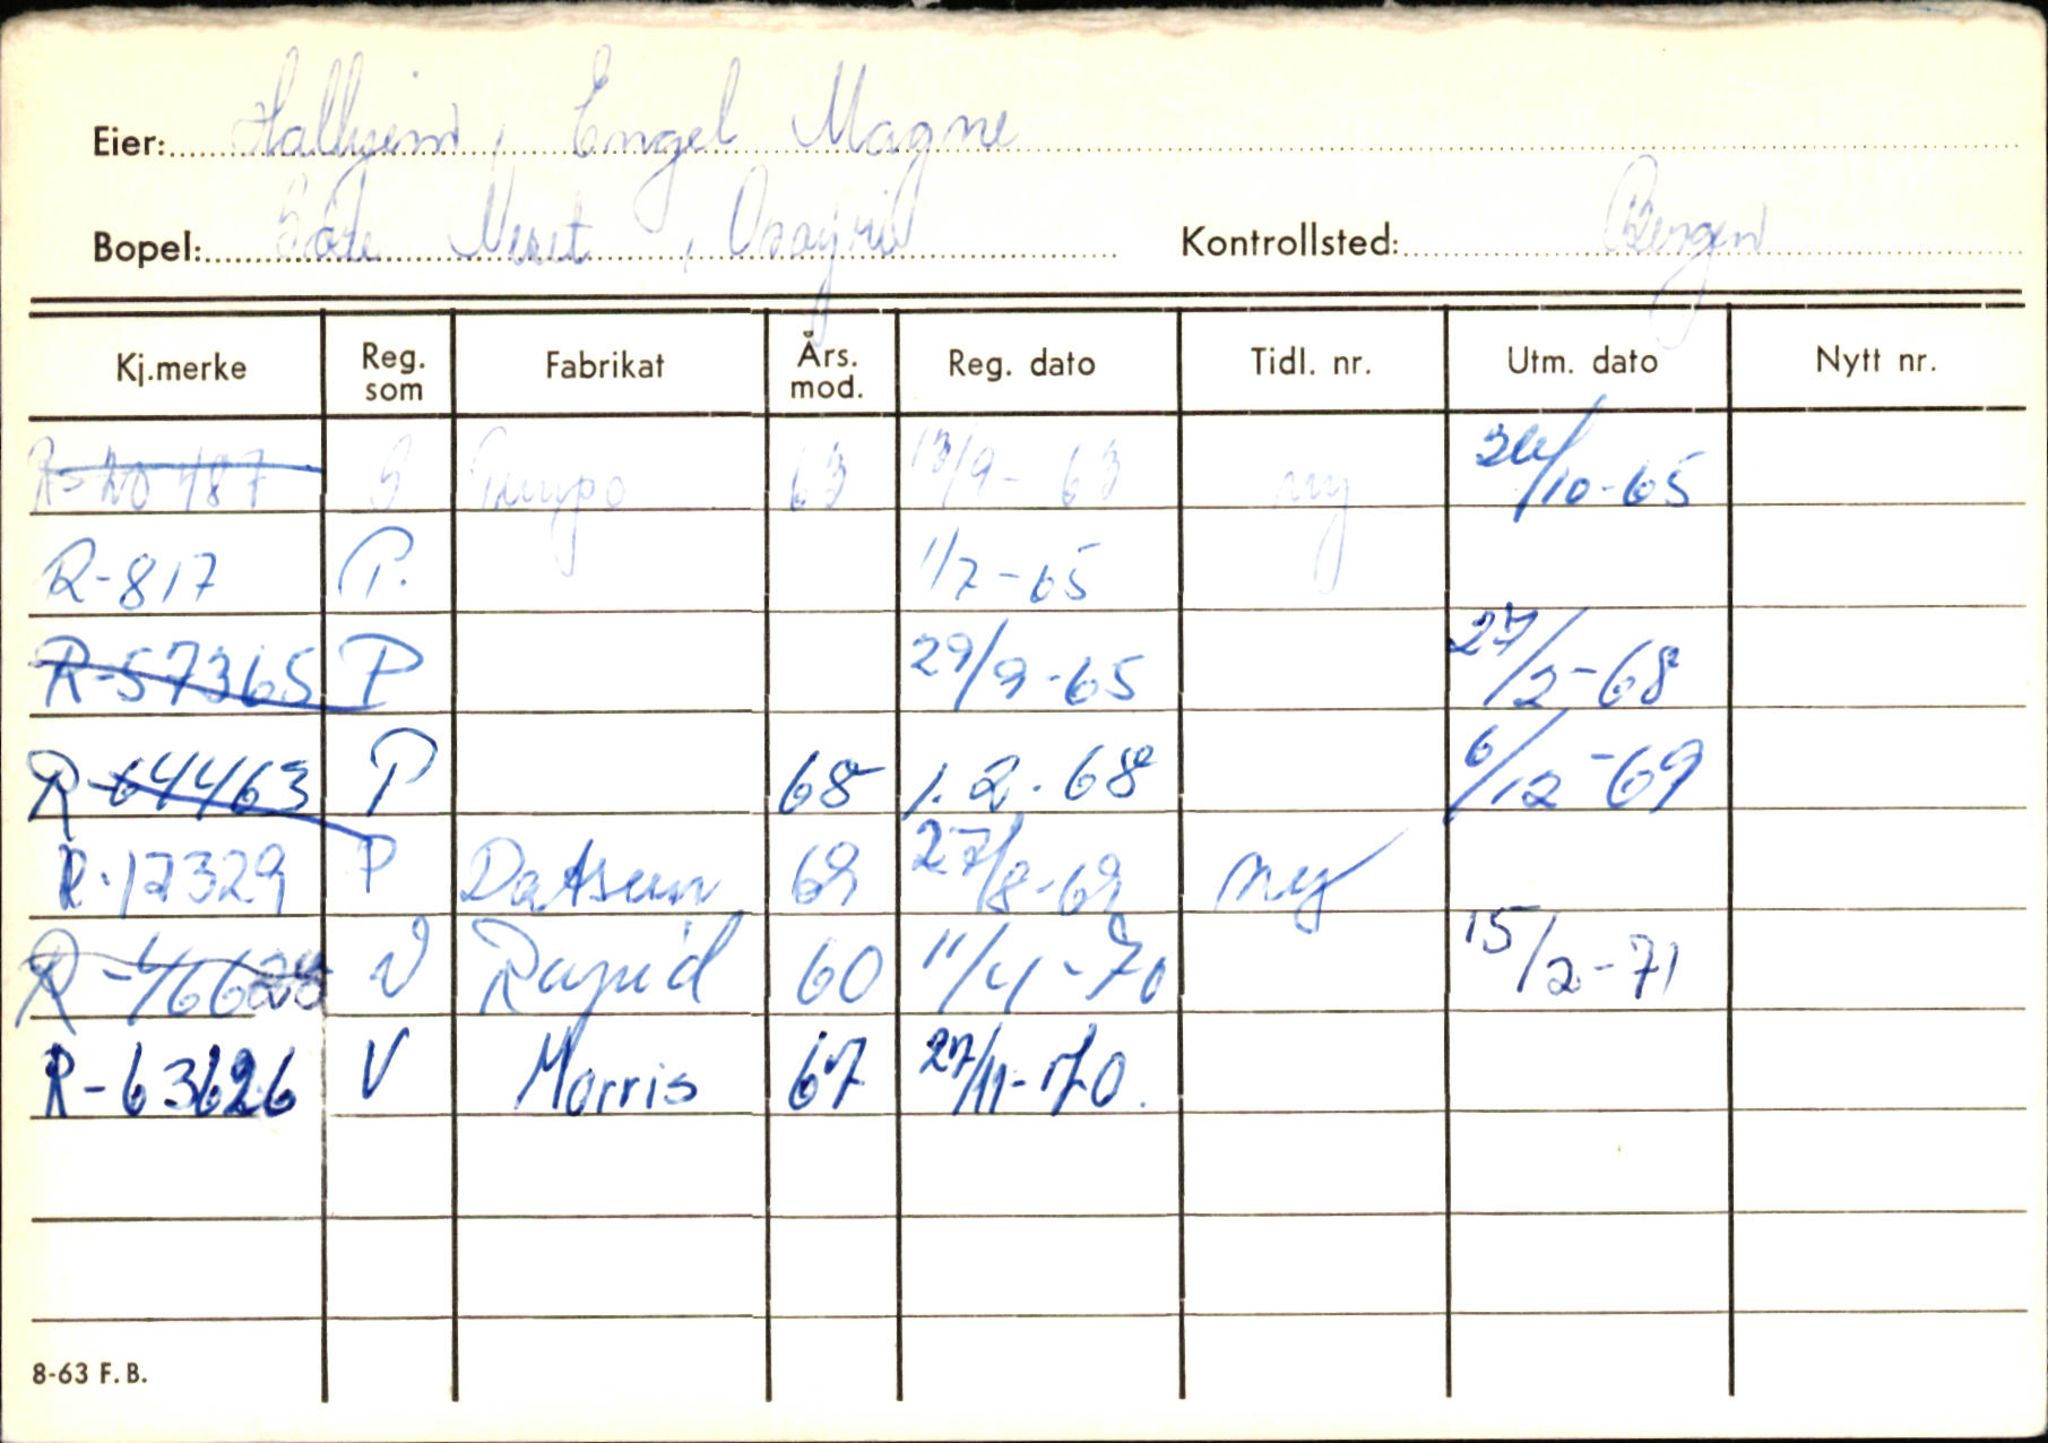 Eier: Halhjem, Engel Magne
Bopel: Neset, Osøyro Kontrollsted: Bergen
Kj.merke Reg. som Fabrikat Års. mod. Reg. dato Tidl. nr. Utm. dato Nytt nr.
R-20487 G Tempo 63 13/9-63 ny 26/10-65
R-817 P. 1/7-65
R-57365 P 29/9-65 27/2-68
R-64463 P 68 1.2.68 6/12-69
R-17329 P Datsun 69 27/8-69 ny
R-46628 V Rapid 60 11/4-70 15/2-71
R-63626 V Morris 67 27/11-70.
8-63 F.B.